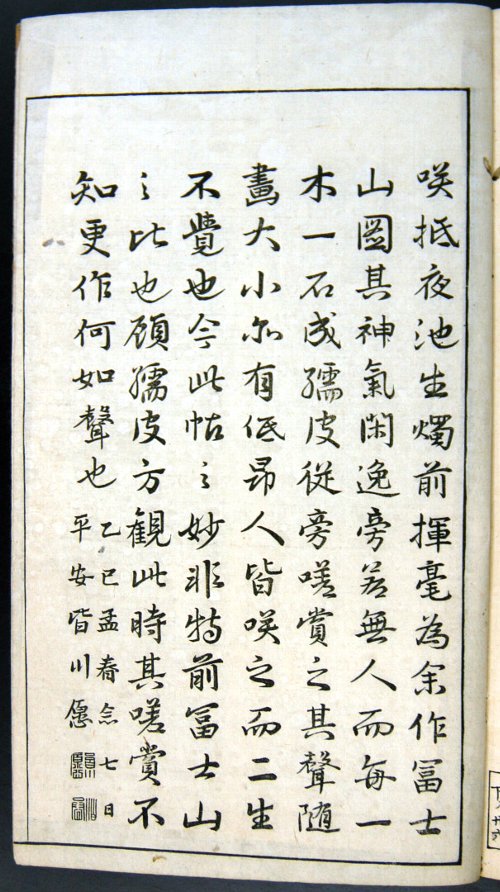 咲抵夜池生燭前揮毫為余作冨士
山圖其神氣閑逸旁若無人而每一
木一石成孺皮從旁嗟賞之其聲随
畫大小亦有低昂人皆咲之而二生
不覺也今此帖之妙非特前冨士山
之比也顧孺皮方觀此時其嗟賞不
知更作何如聲也
乙巳孟春念七日
平安皆川愿